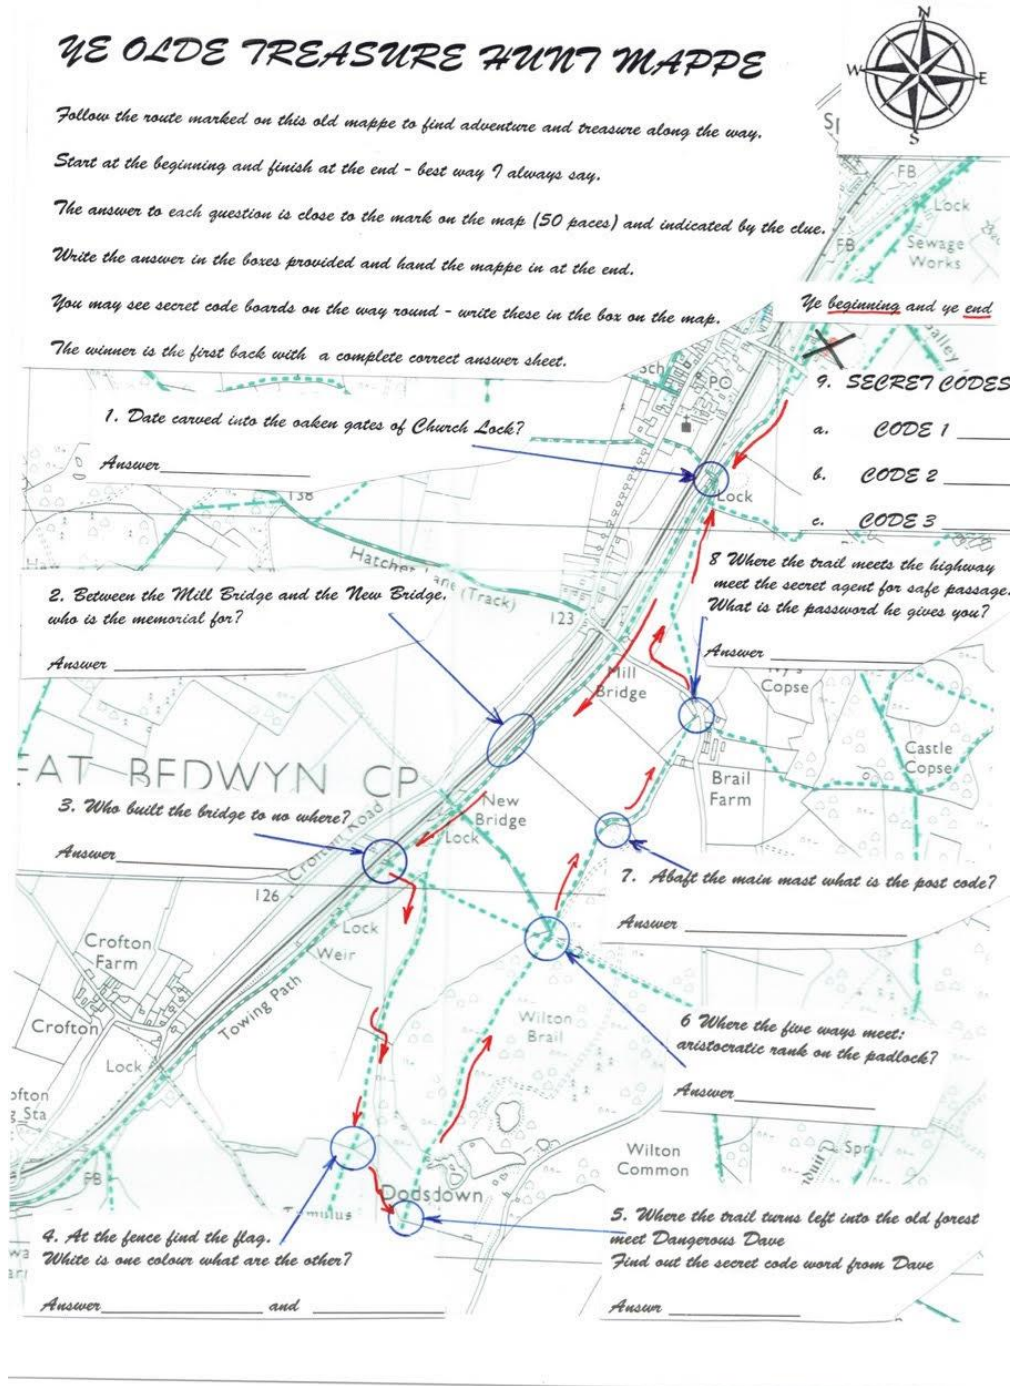 YE OLDE TREASURE HUNT MAPPE
N
W
E
S
Follow the route marked on this old mappe to find adventure and treasure along the way.
Start at the beginning and finish at the end - best way I always say.
The answer to each question is close to the mark on the map (50 paces) and indicated by the clue.
Write the answer in the boxes provided and hand the mappe in at the end.
You may see secret code boards on the way round - write these in the box on the map.
The winner is the first back with a complete correct answer sheet.
FB
Lock
FB
Sewage
Works
Ye beginning and ye end
PO
9. SECRET CODES
a. CODE 1
b. CODE 2
c. CODE 3
1. Date carved into the oaken gates of Church Lock?
Answer
Lock
138
Hatchet Lane (Track)
123
2. Between the Mill Bridge and the New Bridge,
who is the memorial for?
Answer
8 Where the trail meets the highway
meet the secret agent for safe passage.
What is the password he gives you?
Answer
Mill
Bridge
Copse
Castle
Copse
Brail
Farm
EAT BEDWYN CP
New
Bridge
Lock
Crofton Road
3. Who built the bridge to no where?
Answer
126
7. Abaft the main mast what is the post code?
Answer
Lock
Weir
Crofton
Farm
Crofton
Towing Path
Lock
Wilton
Brail
6 Where the five ways meet:
aristocratic rank on the padlock?
Answer
Wilton
Common
Spr
FB
Dodsdown
4. At the fence find the flag.
White is one colour what are the other?
Answer and
5. Where the trail turns left into the old forest
meet Dangerous Dave
Find out the secret code word from Dave
Answr